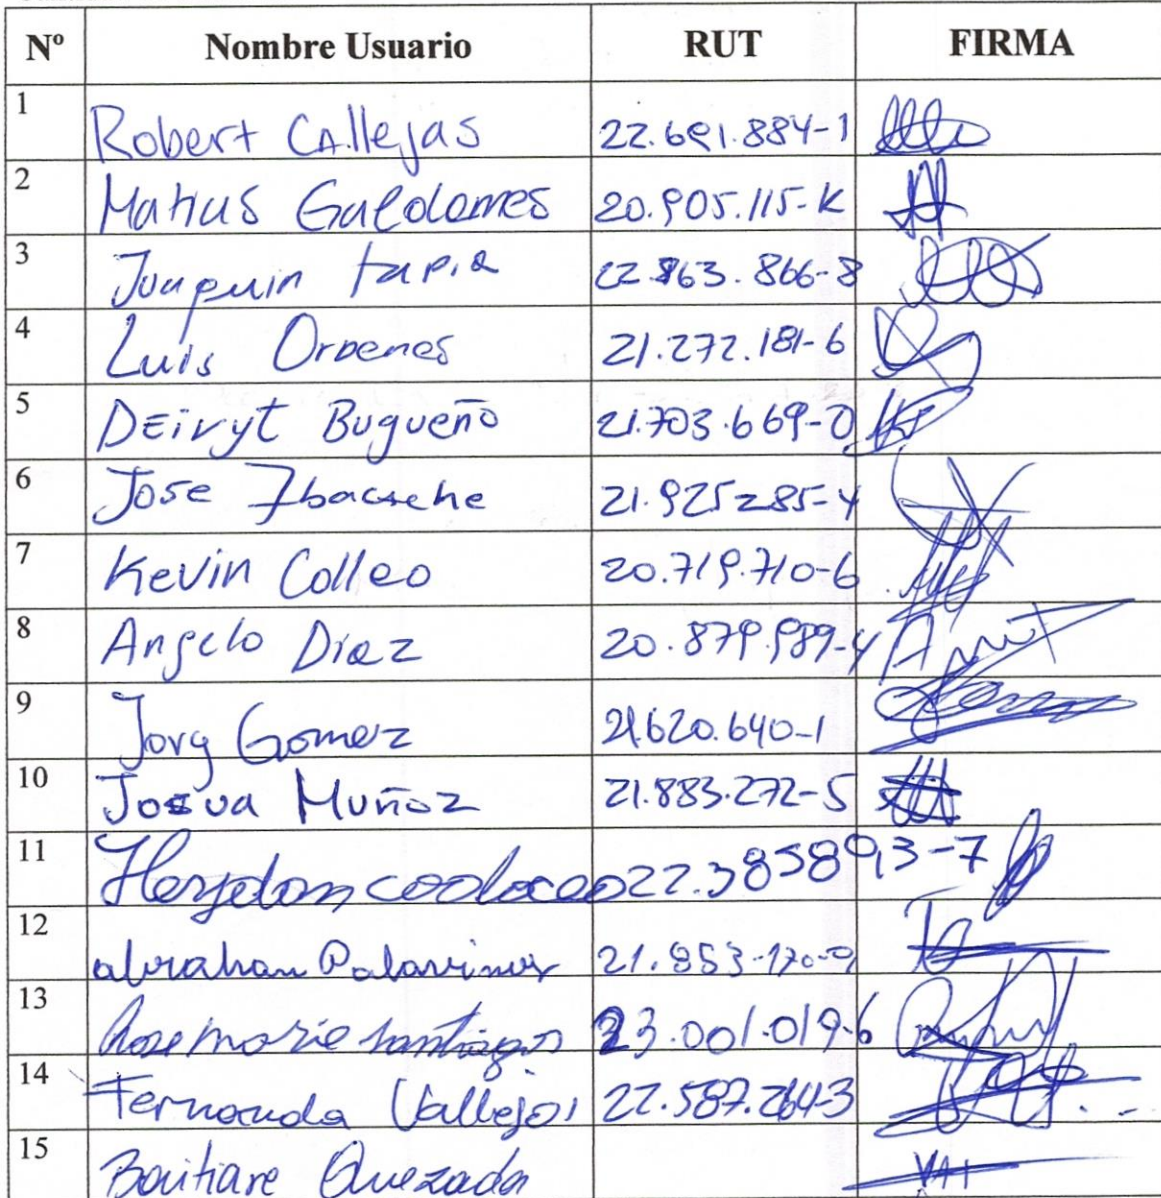 Nº Nombre Usuario RUT FIRMA
1 Robert CAllejas 22.691.884-1
2 Matias Galdames 20.905.115-K
3 Joaquin tapia 22.863.866-8
4 Luis Ordenes 21.272.181-6
5 DEivyt Bugueño 21.703.669-0
6 Jose 21.925285-4
7 Kevin Colleo 20.719.710-6
8 Angelo Diaz 20.879.989-4
9 Jorg Gomez 21.620.640-1
10 Josua Muñoz 21.883.272-5
11 22.385893-7
12 abraham Palavinos
13 Rosemarie santiago 23.001.019-6
14 Fernanda Vallejos 22.587.264-3
15 Quezada